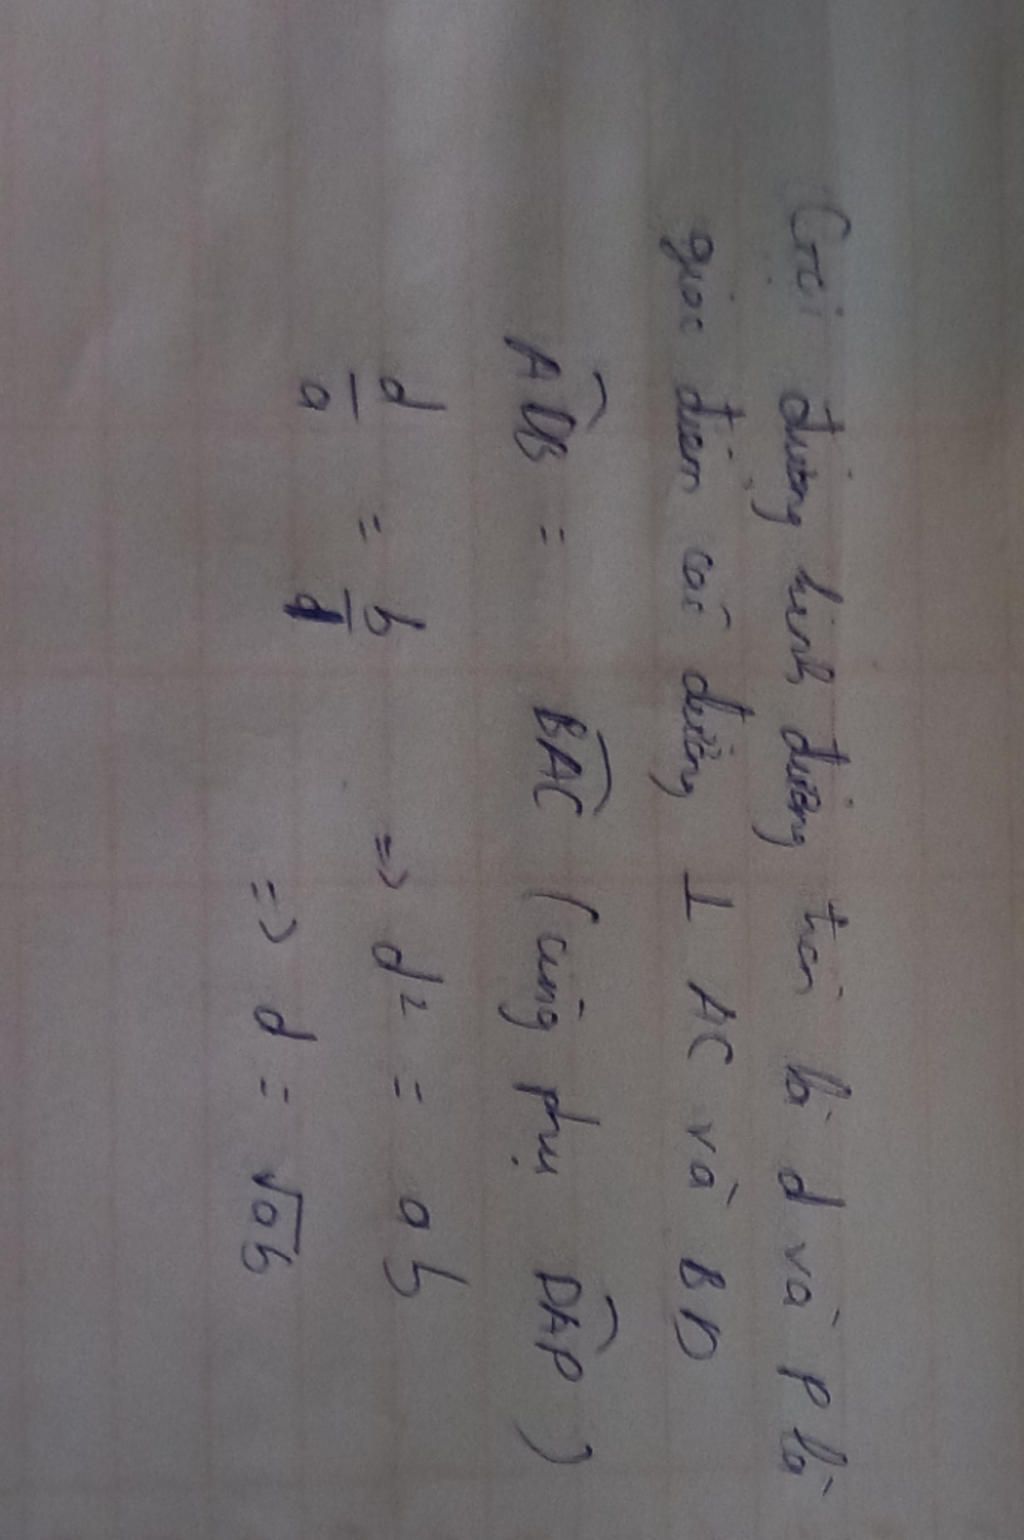 Gọi đường kính đường tròn là d và P là
giao điểm các đường ⊥ AC và BD
ADB = BAC (cùng phụ DAP)
d/a = b/d => d² = ab
=> d = √ab